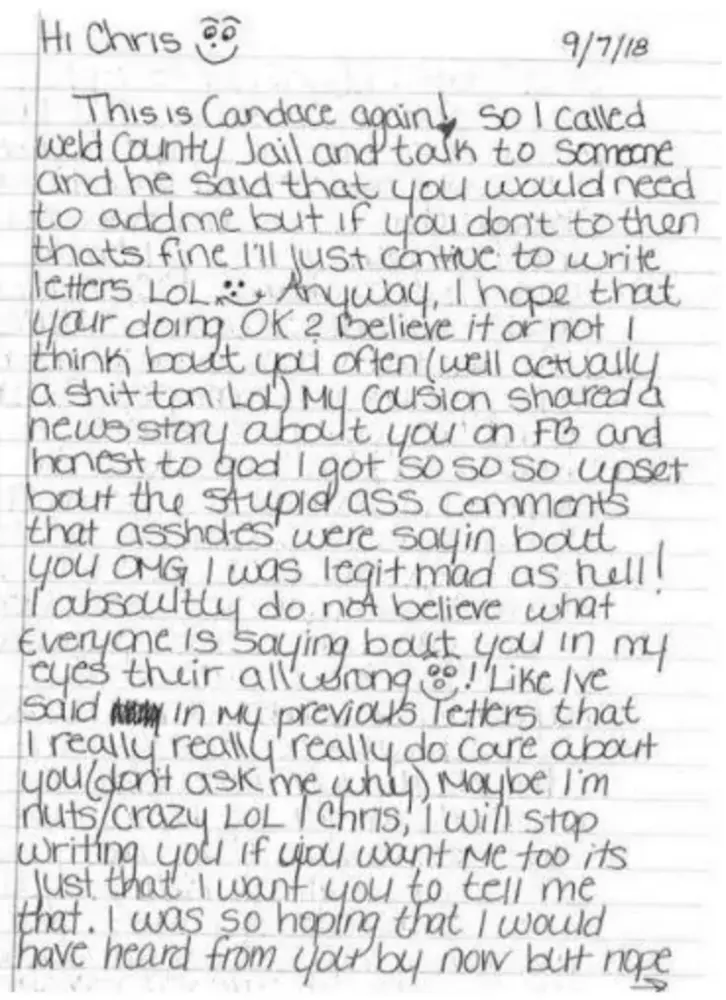 Hi Chris
9/7/18
This is Candace again! So I called
Weld County Jail and talk to someone
and he said that you would need
to add me but if you don't to then
thats fine I'll just contiue to write
letters LOL Anyway, I hope that
your doing OK? Believe it or not I
think bout you often (well actually
a shit ton LoL) My Cousion shared a
news story about you on FB and
honest to god I got so so so upset
bout the stupid ass comments
that assholes were sayin bout
you OMG I was legit mad as hell!
I absoultly do not believe what
Everyone is saying bout you in my
eyes their all wrong ! Like Ive
said in my previous letters that
I really really really do care about
you (don't ask me why) Maybe I'm
nuts/crazy LoL ! Chris, I will stop
writing you if you want me too its
just that I want you to tell me
that. I was so hoping that I would
have heard from you by now but nope
→